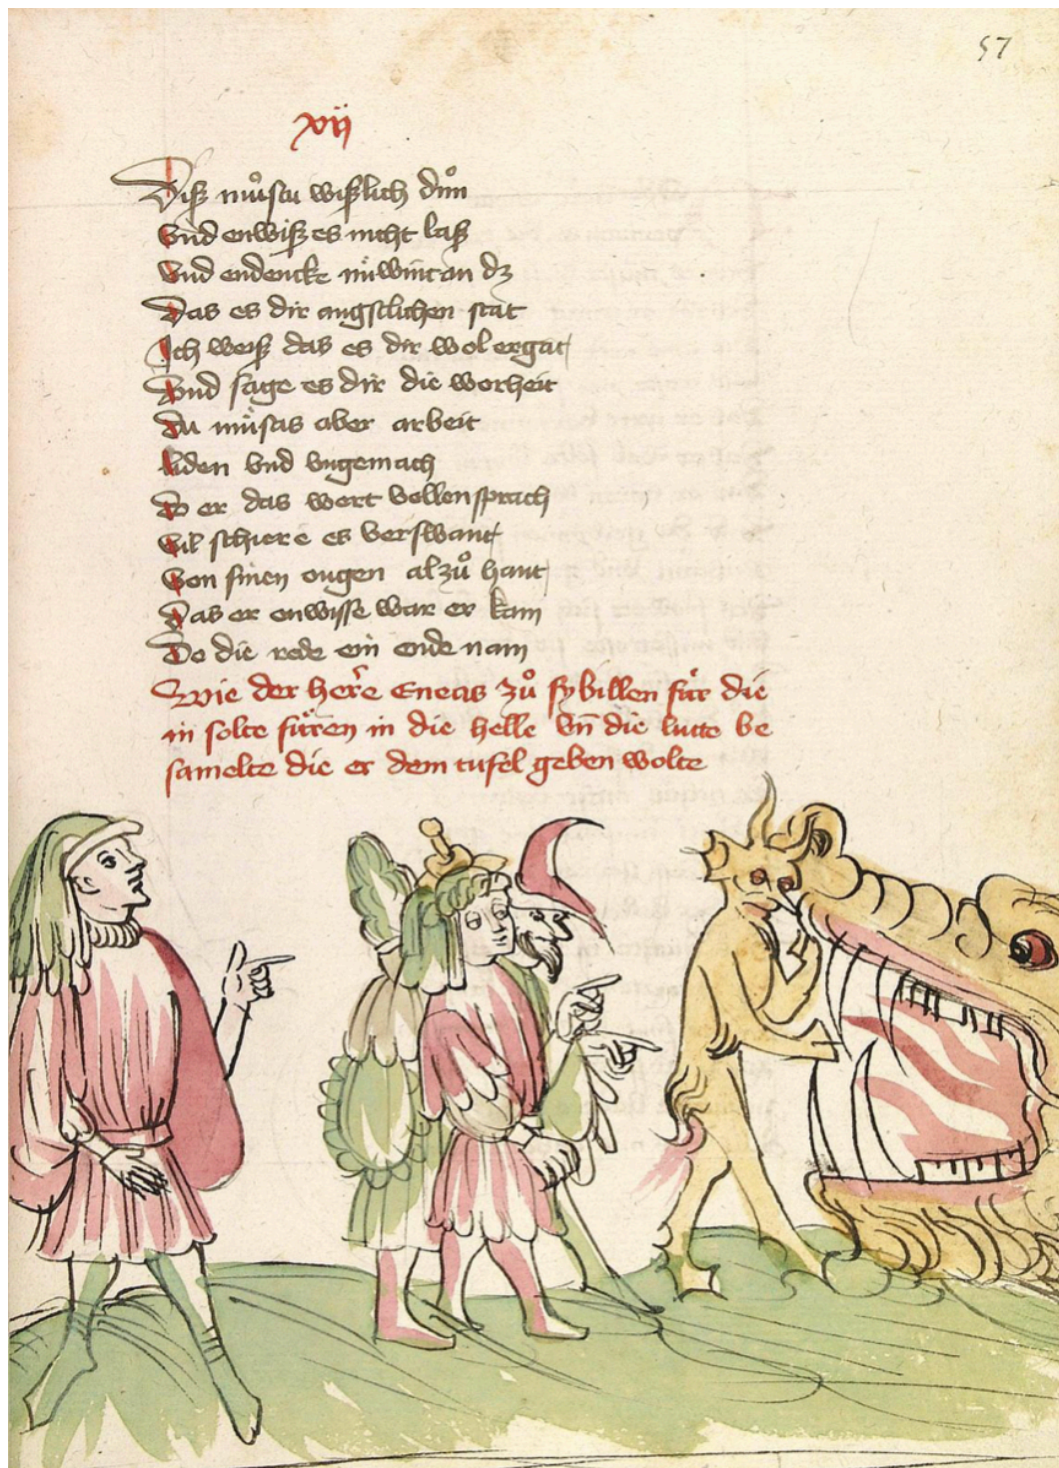 57
xij
Diß muͦstu wißlich duͦn
Vnd enwiß es nicht laß
Vnd endencke niͤwint an dz
Das es dir angstlichen stat
Ich weiß das es dir wol ergat
Vnd sage es dir die worheit
Du muͤstas aber arbeit
liden vnd vngemach
Do er das wort vollen sprach
Vil schiere es verswant
Von sinen ougen alzuͦ hant
Das er enwisse war er kam
Do die rede ein ende nam
Wie der herre Eneas zuͦ sybillen fuͦr die
in solte fuͤren in die helle vn̄ die lutte be
samelte die er dem tufel geben wolte